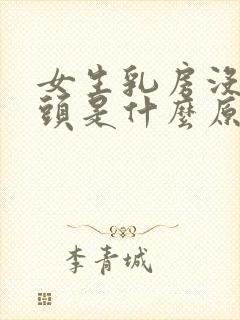 女生乳房沒
頭是什麼原
李青城